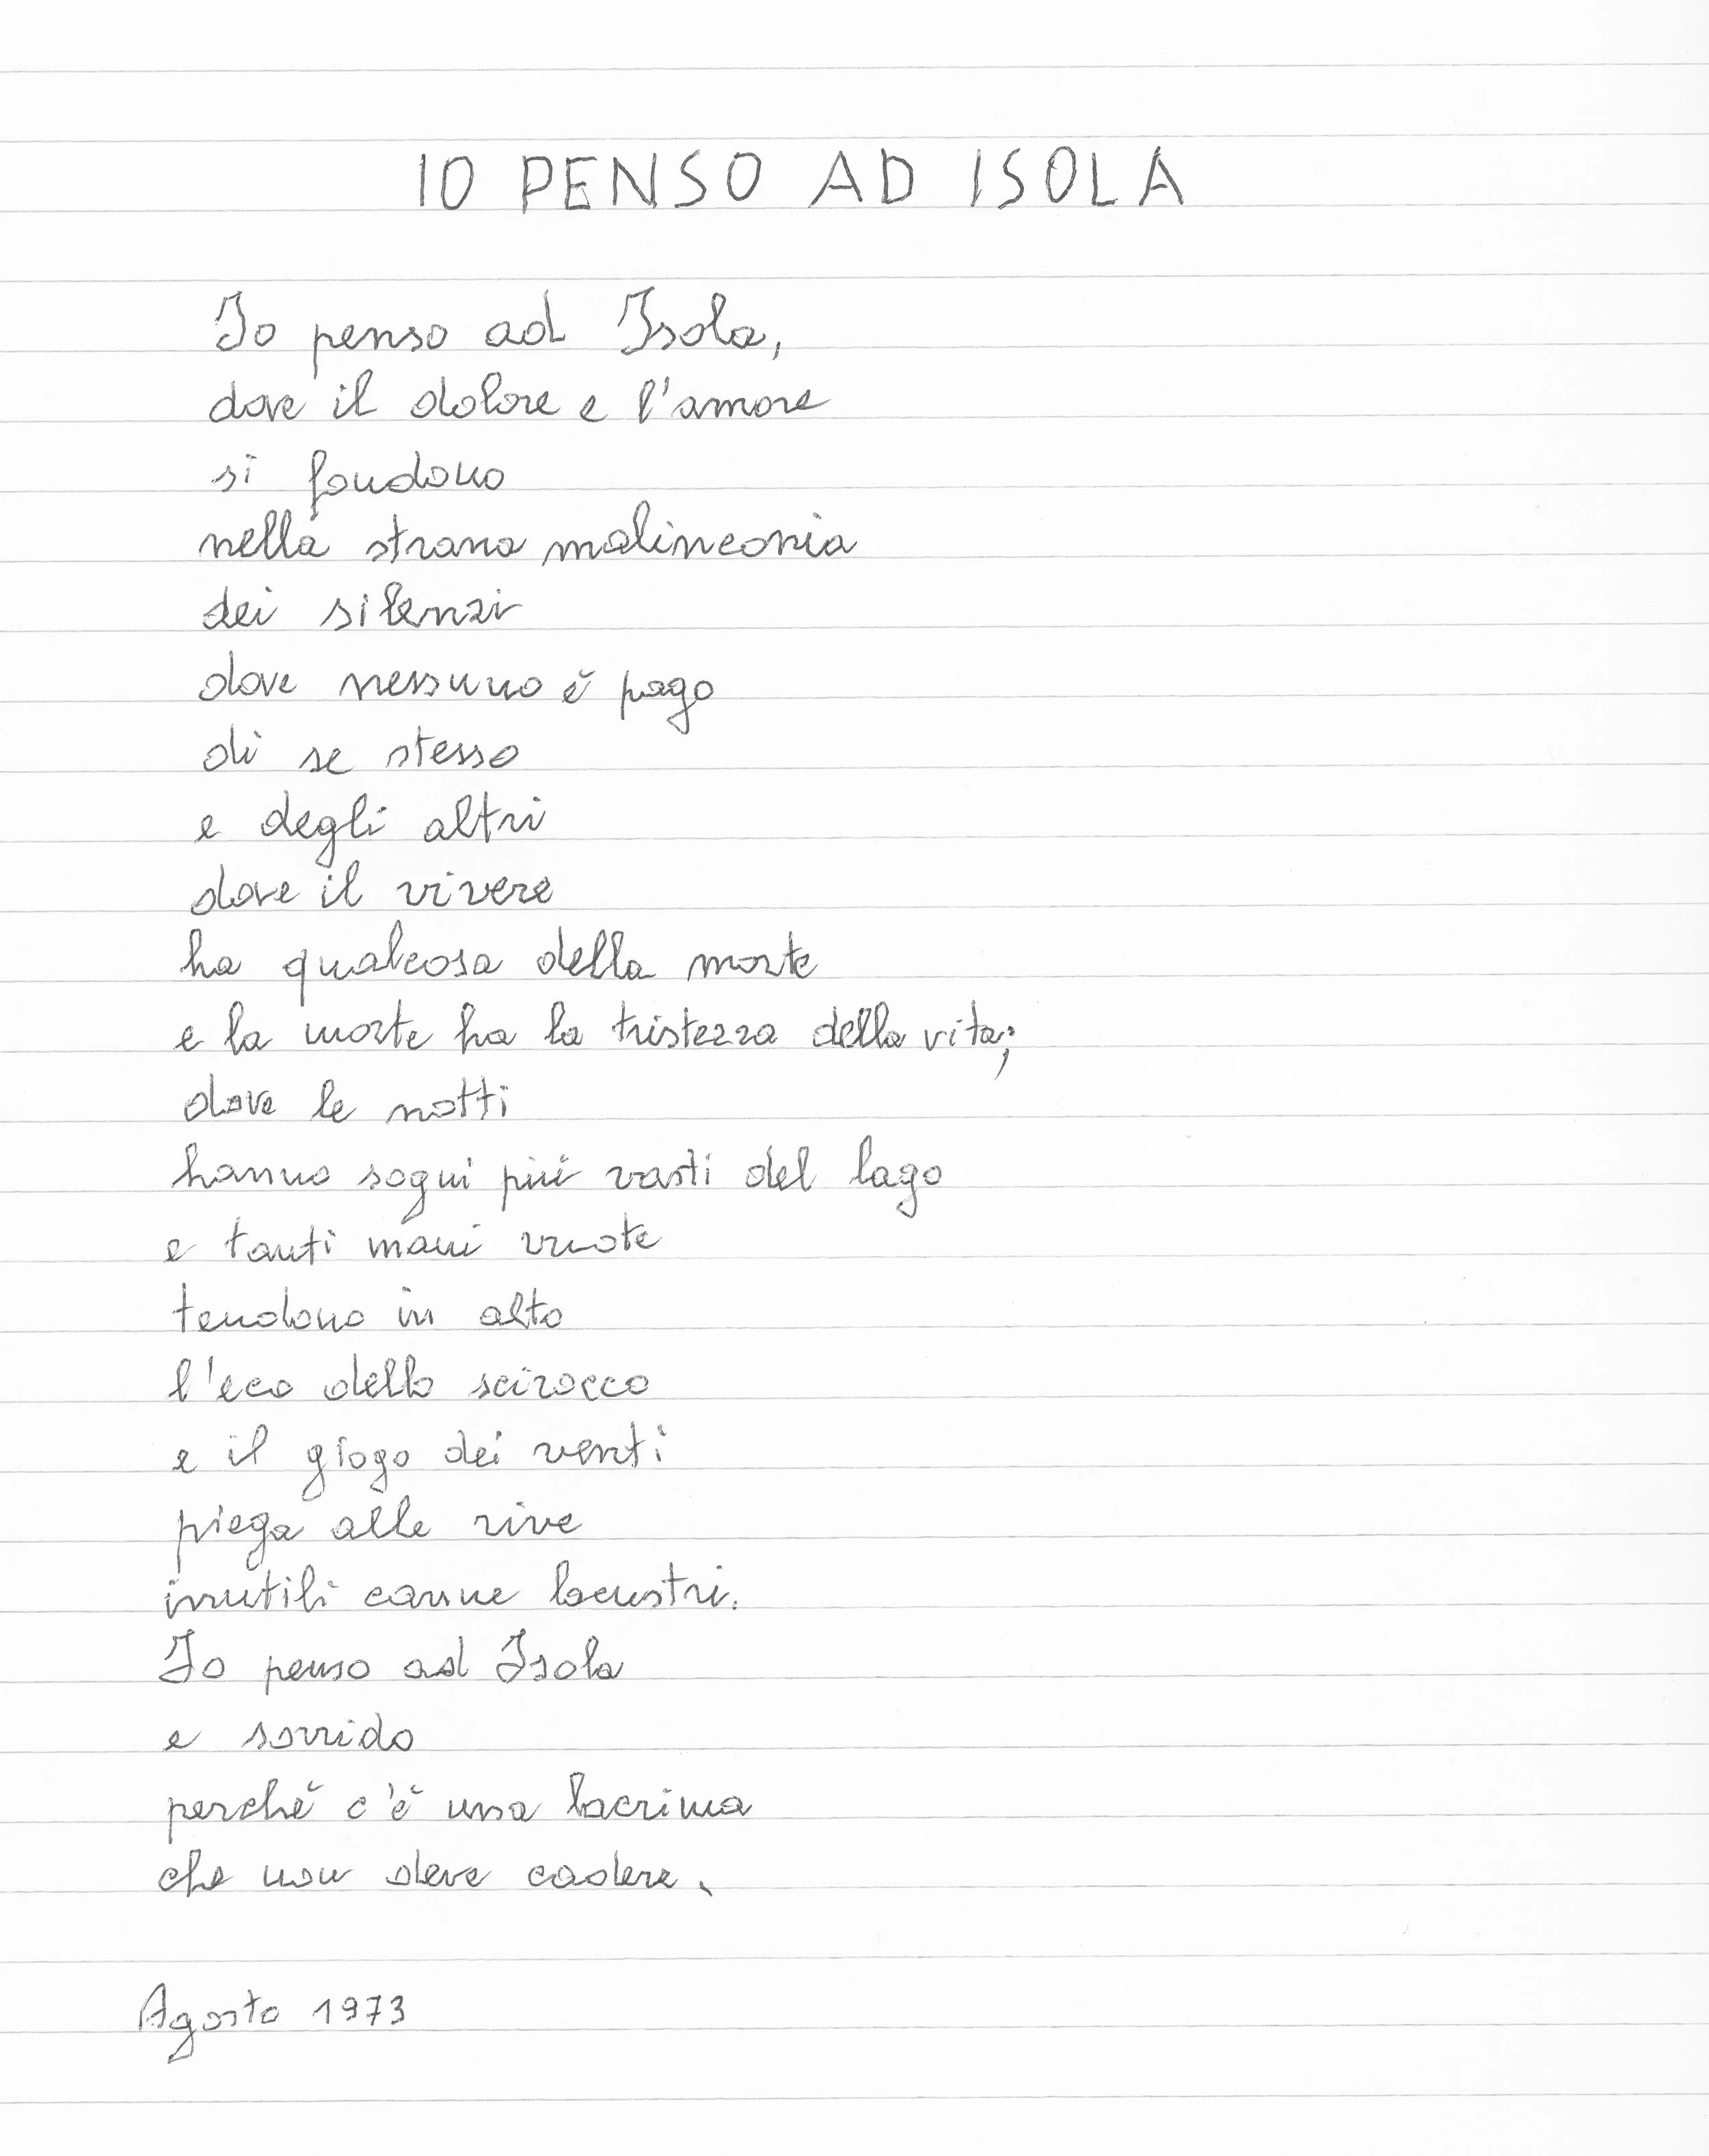 IO PENSO AD ISOLA
Io penso ad Isola,
dove il dolore e l'amore
si fondono
nella strana malinconia
dei silenzi
dove nessuno è pago
di se stesso
e degli altri
dove il vivere
ha qualcosa della morte
e la morte ha la tristezza della vita;
dove le notti
hanno sogni più vasti del lago
e tanti mani vuote
tendono in alto
l'eco dello scirocco
e il giogo dei venti
piega alle rive
inutili canne lacustri.
Io penso ad Isola
e sorrido
perchè c'è una lacrima
che non deve cadere.
Agosto 1973